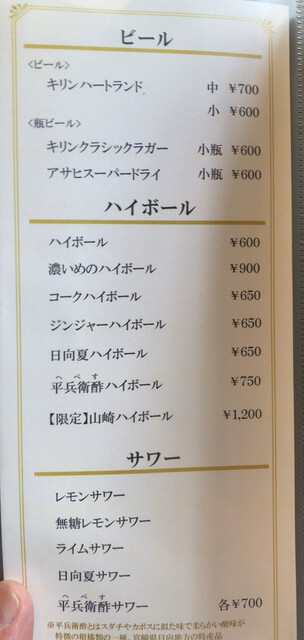 ビール
<ビール>
キリンハートランド 中 ¥700
小 ¥600
<瓶ビール>
キリンクラシックラガー 小瓶 ¥600
アサヒスーパードライ 小瓶 ¥600
ハイボール
ハイボール ¥600
濃いめのハイボール ¥900
コークハイボール ¥650
ジンジャーハイボール ¥650
日向夏ハイボール ¥650
へべす
平兵衛酢ハイボール ¥750
【限定】山崎ハイボール ¥1,200
サワー
レモンサワー
無糖レモンサワー
ライムサワー
日向夏サワー
へべす
平兵衛酢サワー 各¥700
※平兵衛酢とはスダチやカボスに似た味で柔らかい酸味が
特徴の柑橘類の一種。宮崎県日向地方の特産品